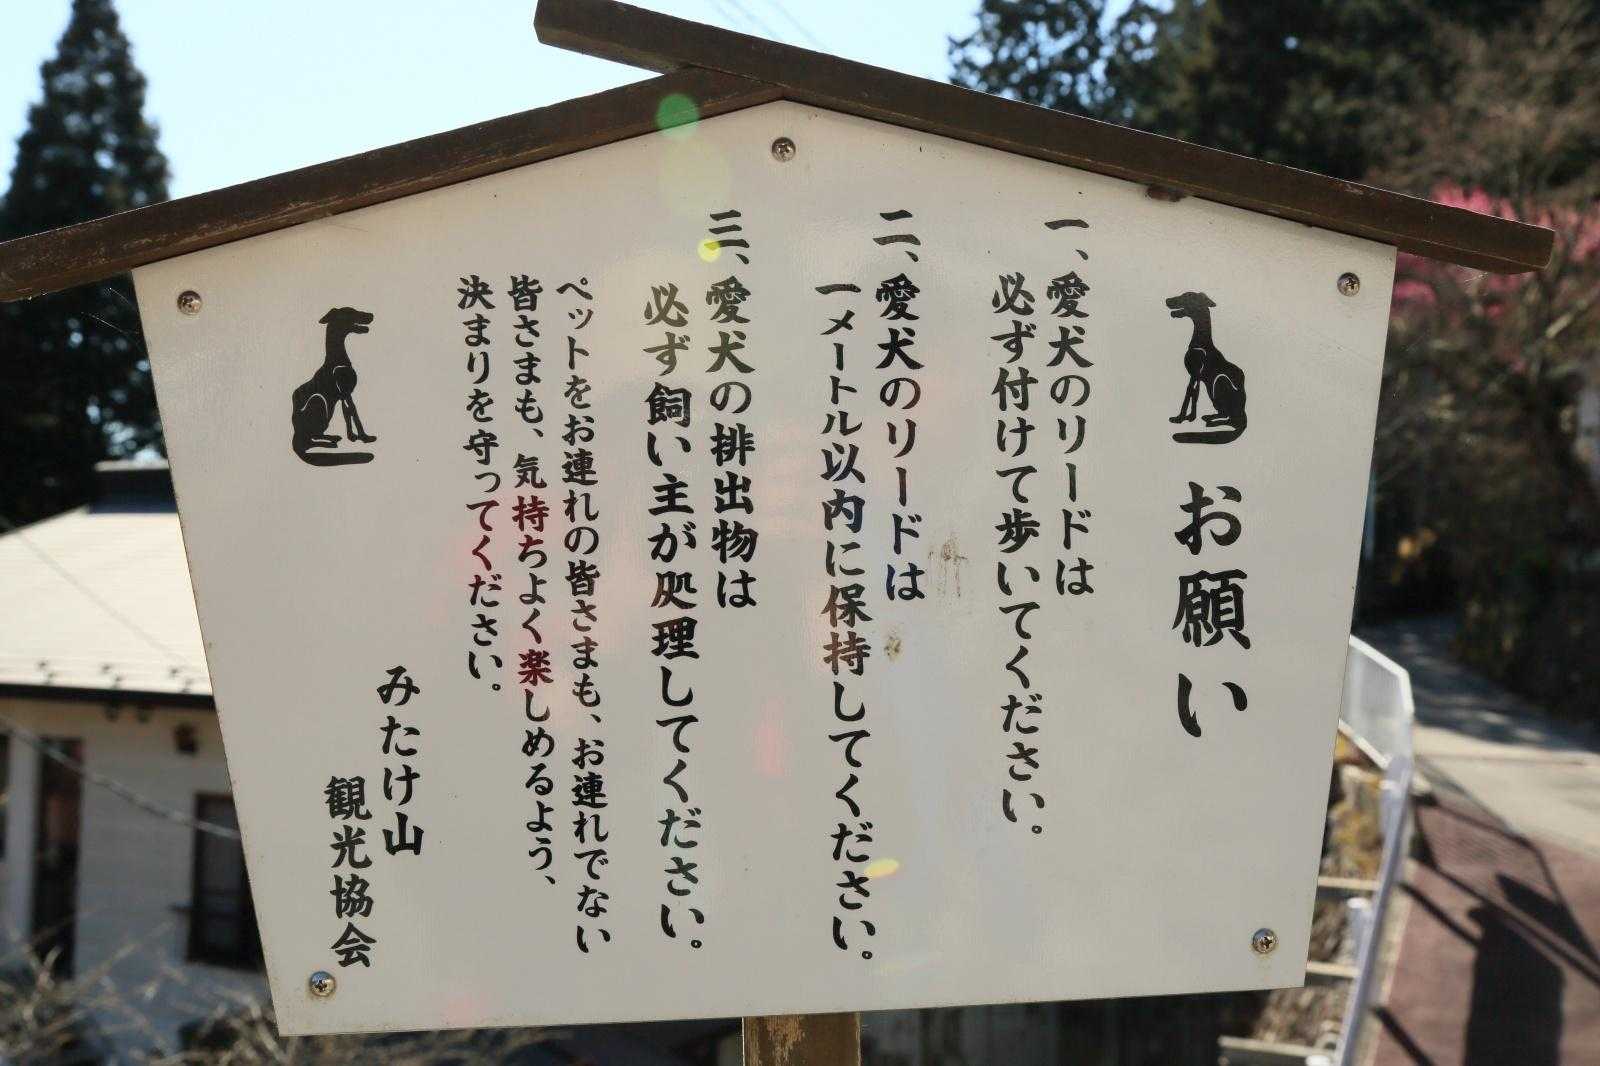 お願い
一、愛犬のリードは
必ず付けて歩いてください。
二、愛犬のリードは
一メートル以内に保持してください。
三、愛犬の排出物は
必ず飼い主が処理してください。
ペットをお連れの皆さまも、お連れでない
皆さまも、気持ちよく楽しめるよう、
決まりを守ってください。
みたけ山
観光協会